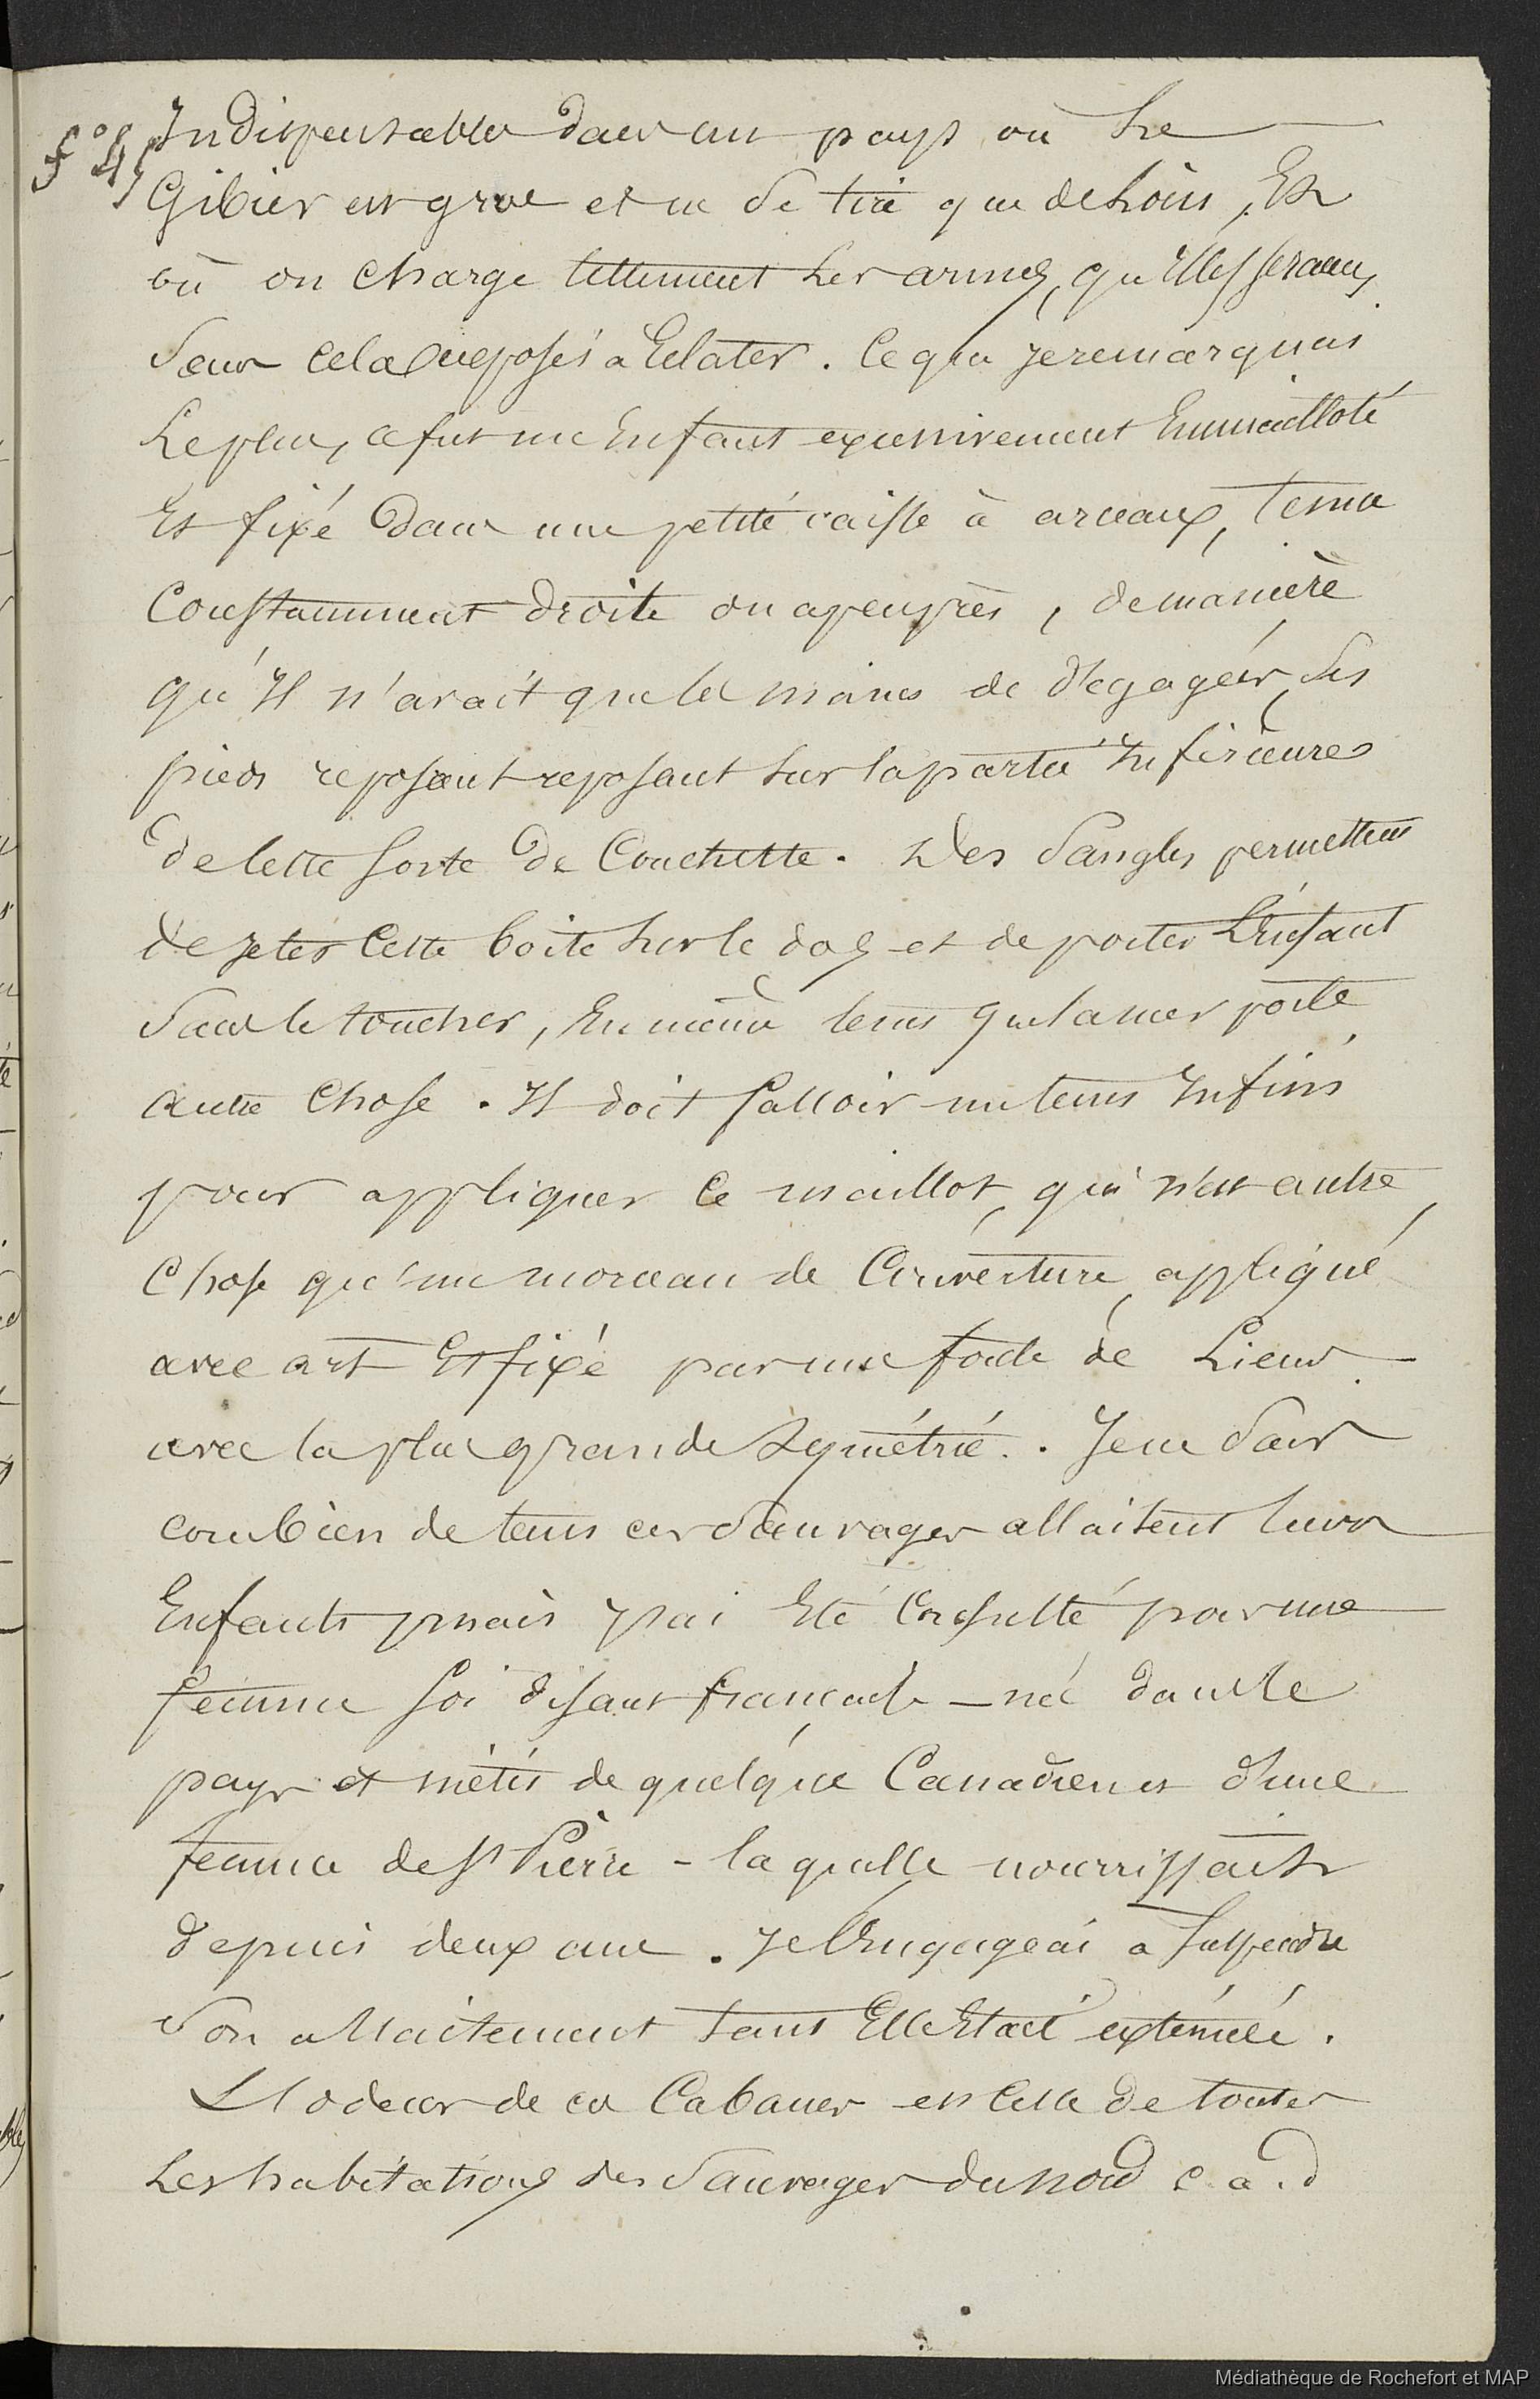 f° 45
Indispensables dans un pays où Le
Gibier est gros et ne se tire que de Loin, Et
où on charge tellement Les armes, qu'Elles seraient
sans cela exposés à Eclater. Ce que je remarquais
Le plus, ce fut un Enfant excessivement Emmailloté
Et fixé dans une petite caisse à arceaux, tenue
Constamment droite ou apeuprès, de manière
qu'Il n'avait que les mains de dégagéer, ses
pieds reposant reposant sur la partie Inférieures
de Cette sorte de Couchette. Des Sangles permettent
de jeter Cette boite sur le dos et de porter L'Enfant
sans le toucher, En même tems que la mer porte
autre Chose. Il doit falloir un tems Infini
pour appliquer ce maillot, qui n'est autre
Chose qu'un morceau de Couverture, appliqué
avec art Et fixé par une foule de Liens
avec la plus grande Symétrie. Je ne sais
combien de tems ces Sauvages allaitent leurs
Enfants, mais j'ai Eté Consulté par une
femme soi disant française - née dans le
pays et métis de quelque Canadien et d'une
femme de St Pierre - laquelle nourrissait
depuis deux ans. Je l'Engageai à suspendre
son allaitement tant Elle Etait exténuée.
L'odeur de ces Cabanes est Celle de toutes
Les habitations des Sauvages du nord c.a.d
Médiathèque de Rochefort et MAP